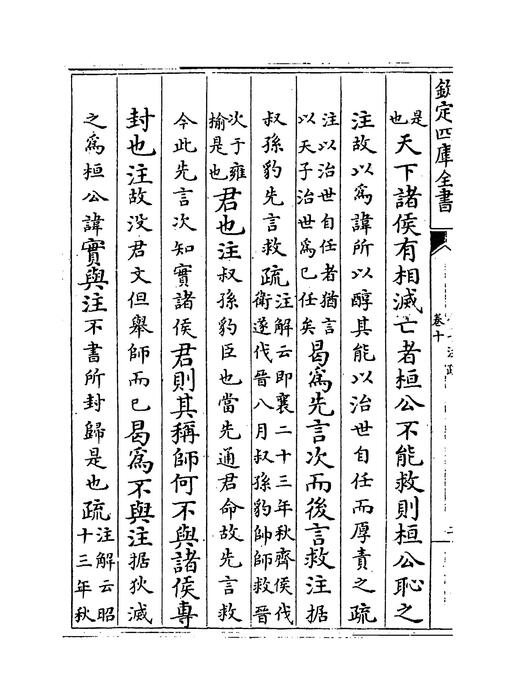 欽定四庫全書
卷十
是也天下諸侯有相滅亡者桓公不能救則桓公恥之
注故以為諱所以醇其能以治世自任而厚責之疏
注以治世自任者猶言以天子治世為已任矣曷為先言次而後言救注据
叔孫豹先言救疏注解云即襄二十三年秋齊侯伐衛遂伐晉八月叔孫豹帥師救晉
次于雍榆是也君也注叔孫豹臣也當先通君命故先言救
今此先言次知實諸侯君則其稱師何不與諸侯專
封也注故没君文但舉師而已曷為不與注据狄滅
之為桓公諱實與注不書所封歸是也疏注解云昭十三年秋